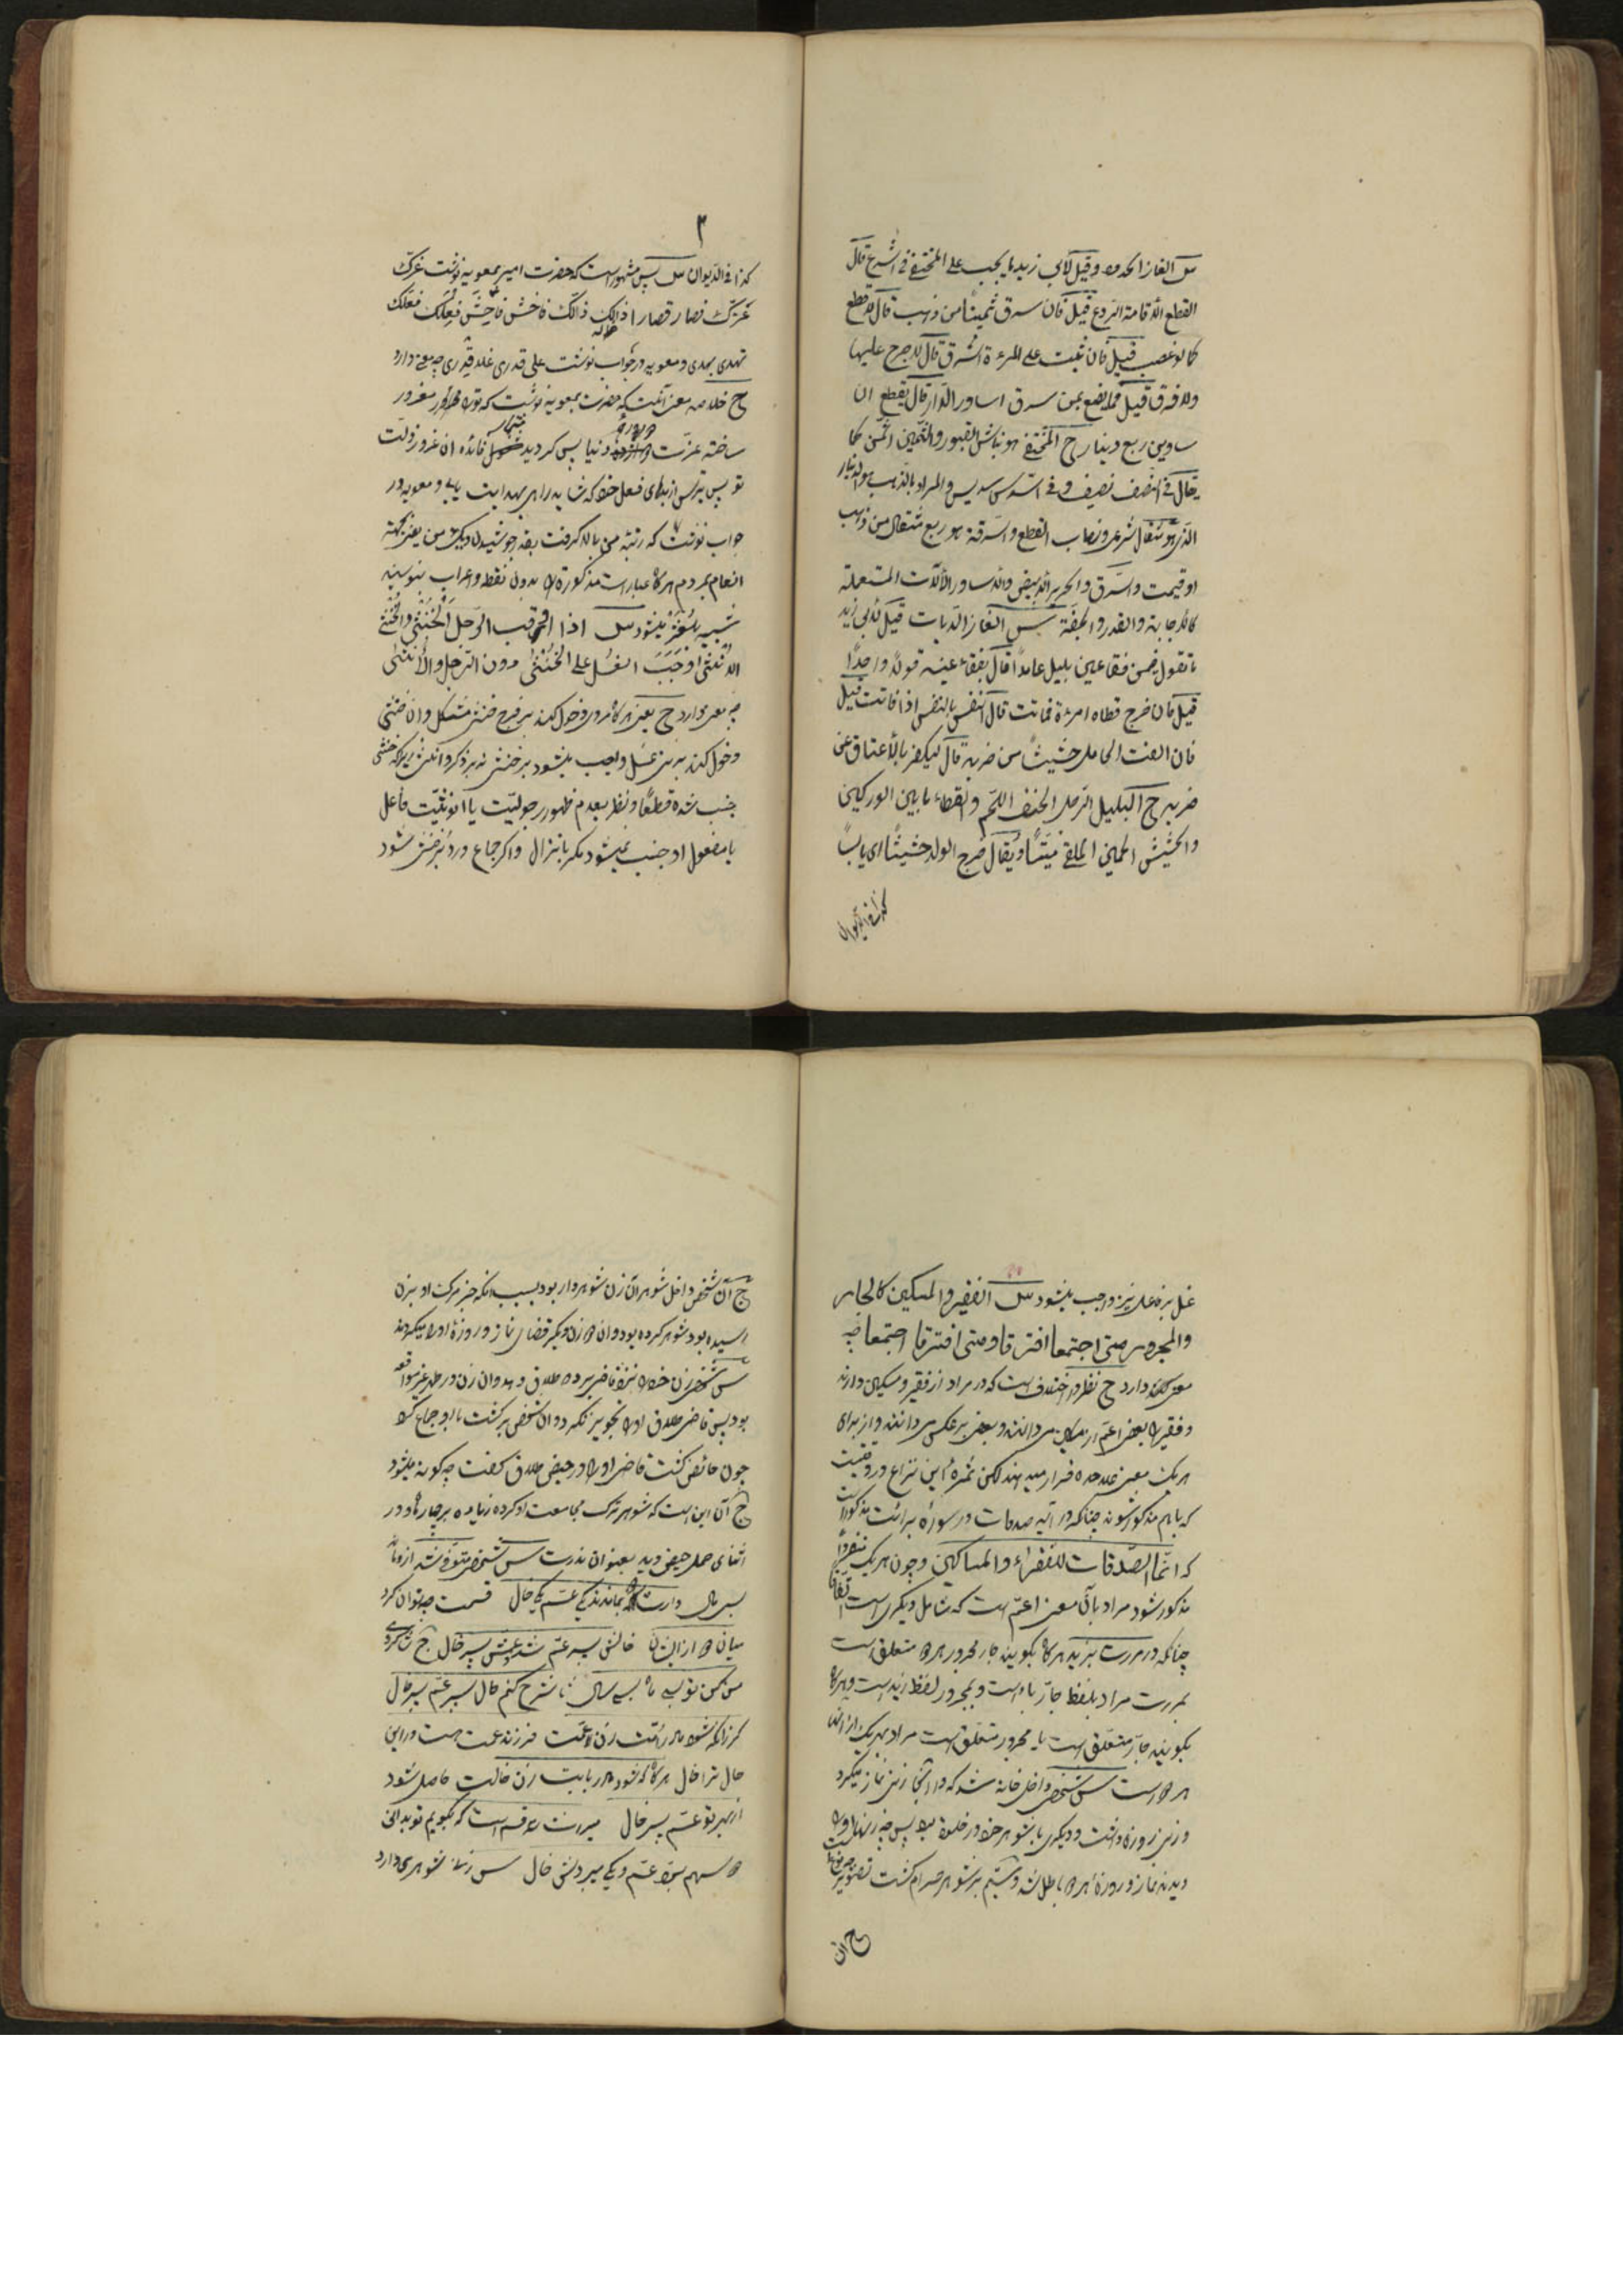 س الغاز الحدود وقيل لابي زيد ما يجب على المختفي في الشرع قال
القطع لاقامة الردع قيل فان سرق ثمينا من ذهب قال لا قطع
كما لو غصب قيل فان ثبت على المرءة السرق قال لا حرج عليها
ولا فرق قيل فما يضع بمن سرق اساور الدار قال يقطع ان
ساوين ربع دينار ج المختفي هو نباش القبور والثمين الثمن كما
يقال في النصف نصيف و في السدس سديس والمراد بالذهب هو الدينار
الذي هو مثقال شرعي ونصاب القطع والسرقة هو ربع مثقال من ذهب
او قيمت والسرق والحرير الابيض والاساور الالات المستعملة
كالاجابة والقدر والجفنة س الغاز الديات قيل لابي زيد
ما تقول فيمن فقا عين بلبل عامدا قال يفقاء عينه قولا واحدا
قيل فان خرج قطاه امرءة فماتت قال النفس بالنفس اذا فاتت قيل
فان القت الحامل حشيشا من ضربه قال ليكفر بالاعتاق عن
ضربه ج البلبل الرجل الخفيف اللحم والقطاء ما بين الوركين
والحشيش الجنين الملقى ميتا ويقال خرج الولد حشيشا اى يابسا
كذا في الديوان
۳
كذا فى الديوان س پس مشهور است كه حضرت امير بمعويه نوشت غرك
عزك فصار قصار ا ذالك ذلك فاخش فاحش فعلك فعلك
تهدى بهدى و معويه در جواب نوشت على قدرى غلا قدرى چه معنى دارد
ج خلاصه معنى آنست كه حضرت بمعويه نوشت كه تورا مغرور
ساخته عزت دنيا پس گرديد فائده ان غرور ذلت
تو پس بترس از بديهاى فعل خود كه شايد راهى بهدايت يابى و معويه در
جواب نوشت كه رتبه من بالا گرفت بقدر جوشيدن ديك من يعنى بجهته
انعام بمردم هرگاه عبارات مذكوره را بدون نقط و اعراب بنويسيد
شبيه بلغز ميشود س اذا الرجل الخنثى والخنثى
الانثى اوجب الغسل على الخنثى دون الرجل والانثى
چه معنى دارد ج يعنى هرگاه مردى دخول كند بر فرج خنثى مشكل و ان خنثى
دخول كند بر زنى غسل واجب ميشود بر خنثى نه بر ذكر و انثى زيراكه خنثى
جنب شده قطعا و نظر بعدم ظهور رجوليت يا انوثيت فاعل
يا مفعول او جنب نميشود مگر بانزال و اگر جماع در دبر خنثى شود
غسل بر فاعل نيز واجب ميشود س الفقير والمسكين كالجار
والمجرور متى اجتمعا افترقا و متى افترقا اجتمعا چه
معنى دارد ج نظر در اختلاف است كه در مراد از فقير و مسكين دارند
و فقير را بعضى اعم از مسكين مى دانند و بعضى بر عكس مى دانند و از براى
هر يك معنى علاحده قرار ميدهند لكن ثمره اين نزاع در وقتيست
كه باهم مذكور شوند چنانكه در آيه صدقات در سوره برائت مذكور است
كه انما الصدقات للفقراء والمساكين و چون هر يك منفردا
مذكور شود مراد بآن معنى اعم است كه شامل ديگرى است اتفاقا
چنانكه در مررت بزيد هرگاه بگويند جار مجرور هر دو متعلق است
بمررت مراد بلفظ جار باء است و بمجرور لفظ زيد است و هرگاه
بگويند جار متعلق است يا مجرور متعلق است مراد بهر يك از انها
هر دو است س شخصى داخل خانه شد كه در انجا زنى نماز ميكرد
و زنى روزه داشت و ديگرى با شوهر خود در خلوة بود پس چه زنها او را
ديدند نماز و روزه هر دو باطل شد و سيم بر شوهر حرام گشت
ج ان
ج آن شخص داخل شوهر آن زن شوهردار بود بسبب انكه خبر مرگ او بزن
رسيده بود شوهر كرده بود و ان دو زن ديگر قضاى نماز و روزه او را ميكردند
س شخصى زن خود را نزد قاضى برده طلاق دهد و ان زن در طهر غير مواقعه
بود پس قاضى طلاق او را تجويز نكرد و ان شخص برگشت با او جماع كرد
چون حائض گشت قاضى او را در حيض طلاق گفت چگونه ميشود
ج آن اين است كه شوهر ترك مجامعت او كرده زياده بر چهار ماه و در
اثناى حمل حيض ديد بعنوان ندرت س شخصى متوفى شد از او ماند
بسى مال وارث نماندند يكى عم يكى خال قسمت چه توان كرد
ميان دو از ايشان خالش پسر عم شد و عمش پسر خال ج
من نمى توانم بسى سال تا شرح كنم حال پسر عم پسر خال
گر زانكه شود مادر رامت زن عمت فرزند عمت هست در اين
حال ترا خال هرگاه كه شود مادر بابت زن خالت حاصل شود
از بهر تو عم پسر خال ميراث سه قسم است كه بگويم تو بدانى
دو سهم ببرد عم و يكى ميبردش خال س زنى شوهرى دارد